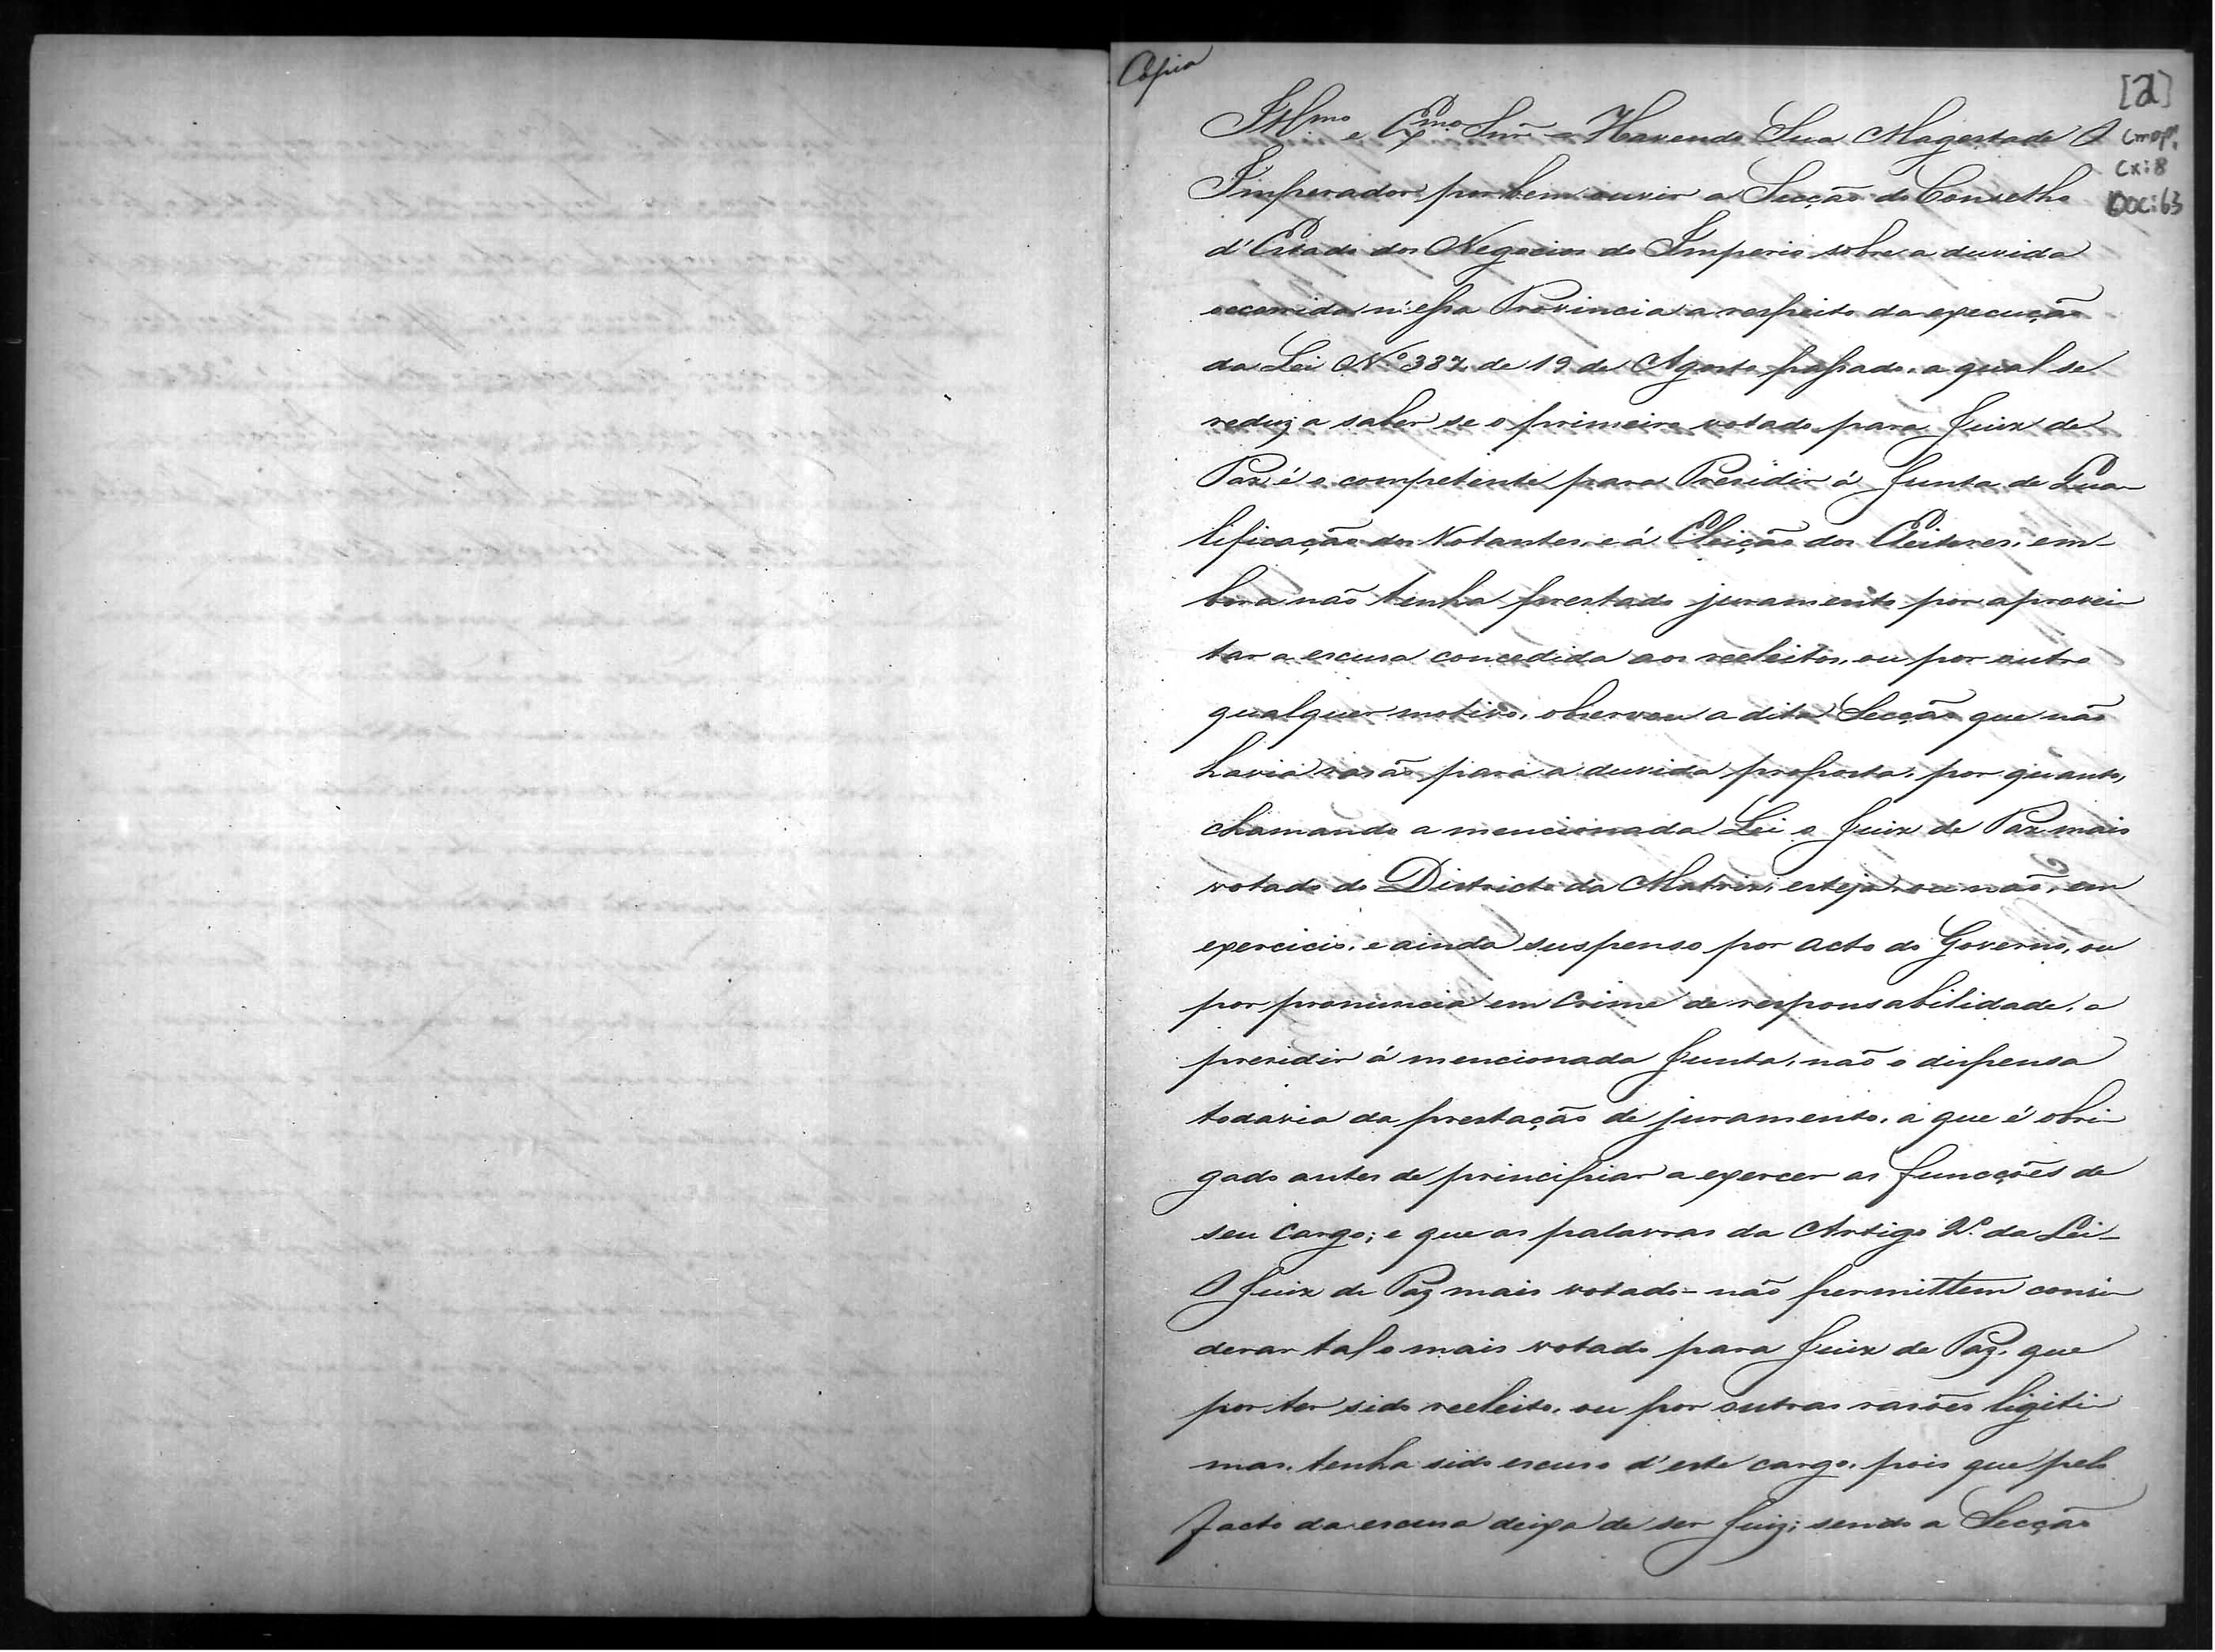 Copia
[2]
CMOP.
Cx: 8
DOC: 63
Illmo e Exmo Snr̃ - Havendo Sua Magestade O
Imperador por bem ouvir a Secção do Conselho
d'Estado dos Negocios do Imperio sobre a duvida
occorrida n'essa Provincia a respeito da execução
da Lei Nº 387 de 19 de Agosto passado, a qual se
reduz a saber se o primeiro votado para Juiz de
Paz é o competente para Presidir á Junta de Qua-
lificação dos Votantes, e á Eleição dos Eleitores, em-
bora não tenha prestado juramento por aprovei-
tar a escusa concedida aos reeleitos, ou por outro
qualquer motivo, observou a dita Secção que não
havia rasão para a duvida proposta, por quanto,
chamando a mencionada Lei o Juiz de Paz mais
votado do Districto da Matriz, esteja ou não, em
exercicio, e ainda suspenso por acto do Governo, ou
por pronuncia em Crime de responsabilidade, a
presidir á mencionada Junta, não o dispensa
todavia da prestação de juramento, a que é obri-
gado antes de principiar a exercer as funcções de
seu Cargo; e que as palavras da Artigo 2º. da Lei -
O Juiz de Paz mais votado - não permittem consi-
derar tal o mais votado para Juiz de Paz, que
por ter sido reeleito, ou por outras rasões ligiti-
mas, tenha sido escuso d'este cargo, pois que pelo
facto da escusa deixa de ser Juiz; sendo a Secção